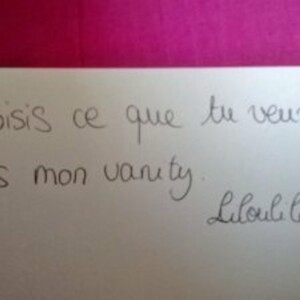 oisis ce que tu veux
s mon vanity.
Liloulil